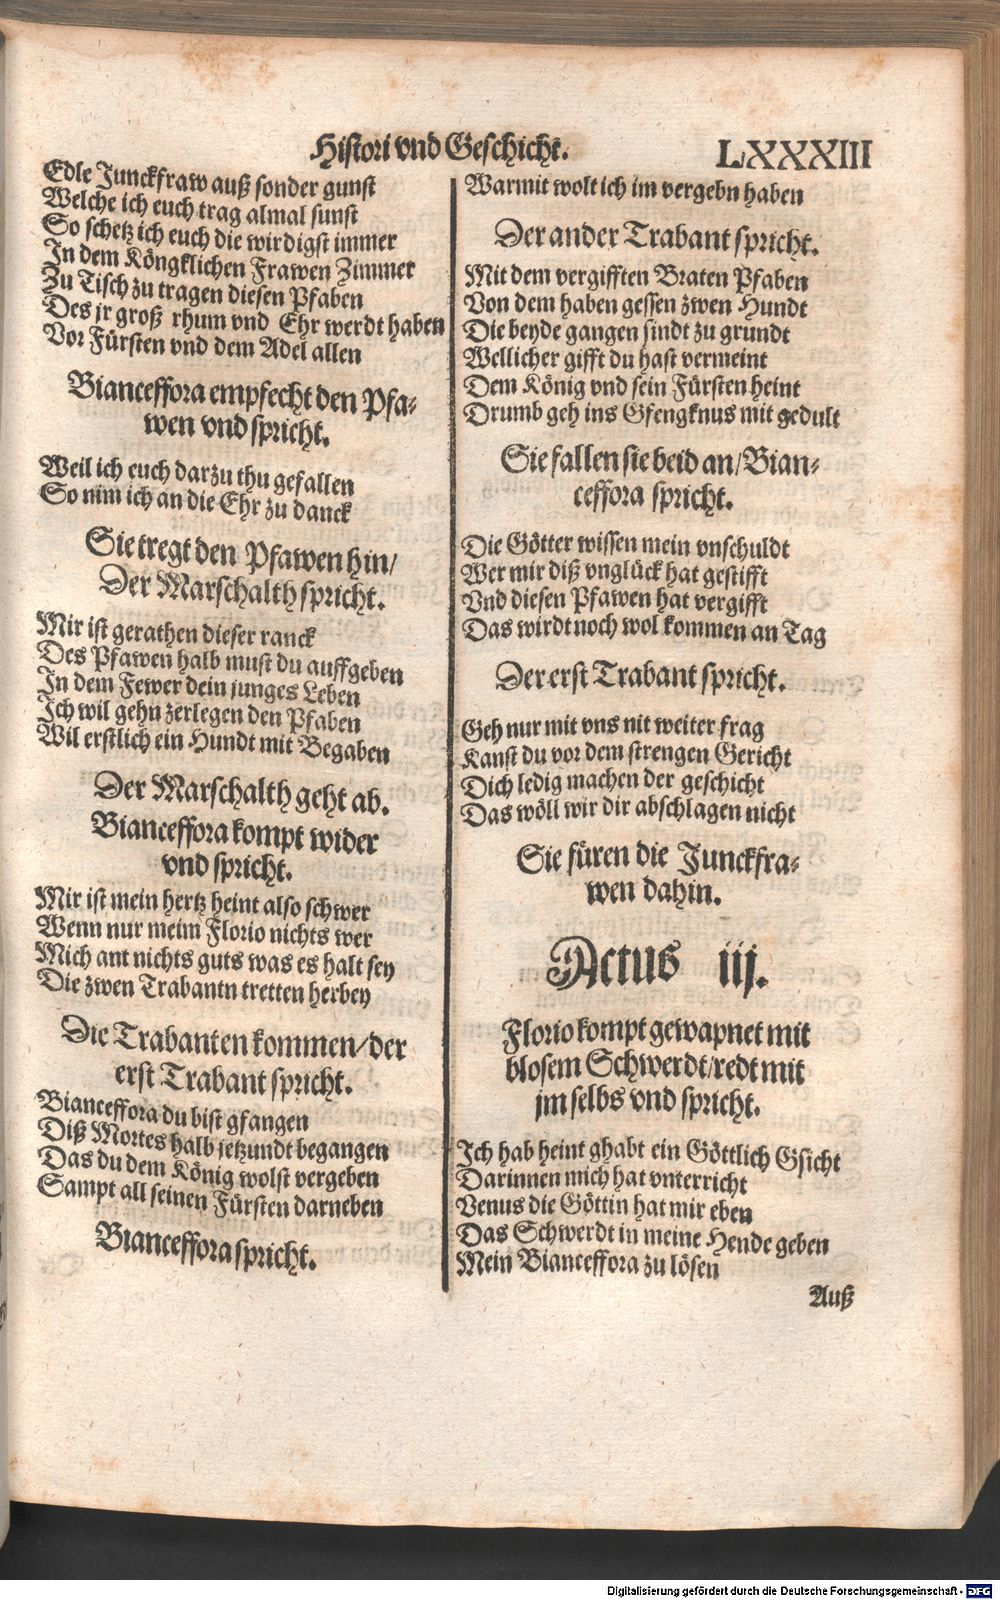 Histori vnd Geschicht.
LXXXIII
Edle Junckfraw auß sonder gunst
Welche ich euch trag almal sunst
So schetz ich euch die wirdigst immer
In dem Köngklichen Frawen Zimmer
Zu Tisch zu tragen diesen Pfaben
Des jr groß rhum vnd Ehr werdt haben
Vor Fürsten vnd dem Adel allen
Bianceffora empfecht den Pfa-
wen vnd spricht.
Weil ich euch darzu thu gefallen
So nim ich an die Ehr zu danck
Sie tregt den Pfawen hin/
Der Marschalth spricht.
Mir ist gerathen dieser ranck
Des Pfawen halb must du auffgeben
In dem Fewer dein junges Leben
Ich wil gehn zerlegen den Pfaben
Wil erstlich ein Hundt mit Begaben
Der Marschalth geht ab.
Bianceffora kompt wider
vnd spricht.
Mir ist mein hertz heint also schwer
Wenn nur meim Florio nichts wer
Mich ant nichts guts was es halt sey
Die zwen Trabantn tretten herbey
Die Trabanten kommen/der
erst Trabant spricht.
Bianceffora du bist gfangen
Diß Mortes halb jetzundt begangen
Das du dem König wolst vergeben
Sampt all seinen Fürsten darneben
Bianceffora spricht.
Warmit wolt ich im vergebn haben
Der ander Trabant spricht.
Mit dem vergifften Braten Pfaben
Von dem haben gessen zwen Hundt
Die beyde gangen sindt zu grundt
Wellicher gifft du hast vermeint
Dem König vnd sein Fürsten heint
Drumb geh ins Gfengknus mit gedult
Sie fallen sie beid an/Bian-
ceffora spricht.
Die Götter wissen mein vnschuldt
Wer mir diß vnglück hat gestifft
Vnd diesen Pfawen hat vergifft
Das wirdt noch wol kommen an Tag
Der erst Trabant spricht.
Geh nur mit vns nit weiter frag
Kanst du vor dem strengen Gericht
Dich ledig machen der geschicht
Das wöll wir dir abschlagen nicht
Sie füren die Junckfra-
wen dahin.
Actus iij.
Florio kompt gewapnet mit
blosem Schwerdt/redt mit
jm selbs vnd spricht.
Ich hab heint ghabt ein Göttlich Gsicht
Darinnen mich hat vnterricht
Venus die Göttin hat mir eben
Das Schwerdt in meine Hende geben
Mein Bianceffora zu lösen
Auß
Digitalisierung gefördert durch die Deutsche Forschungsgemeinschaft - DFG